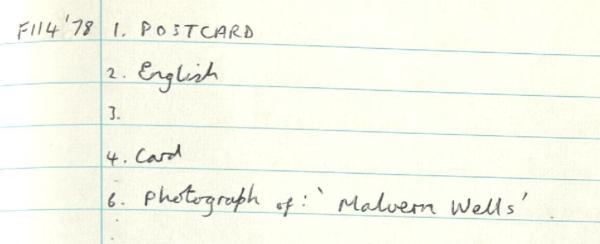 F114'78 1. POSTCARD
2. English
3.
4. Card
6. Photograph of: 'Malvern Wells'.